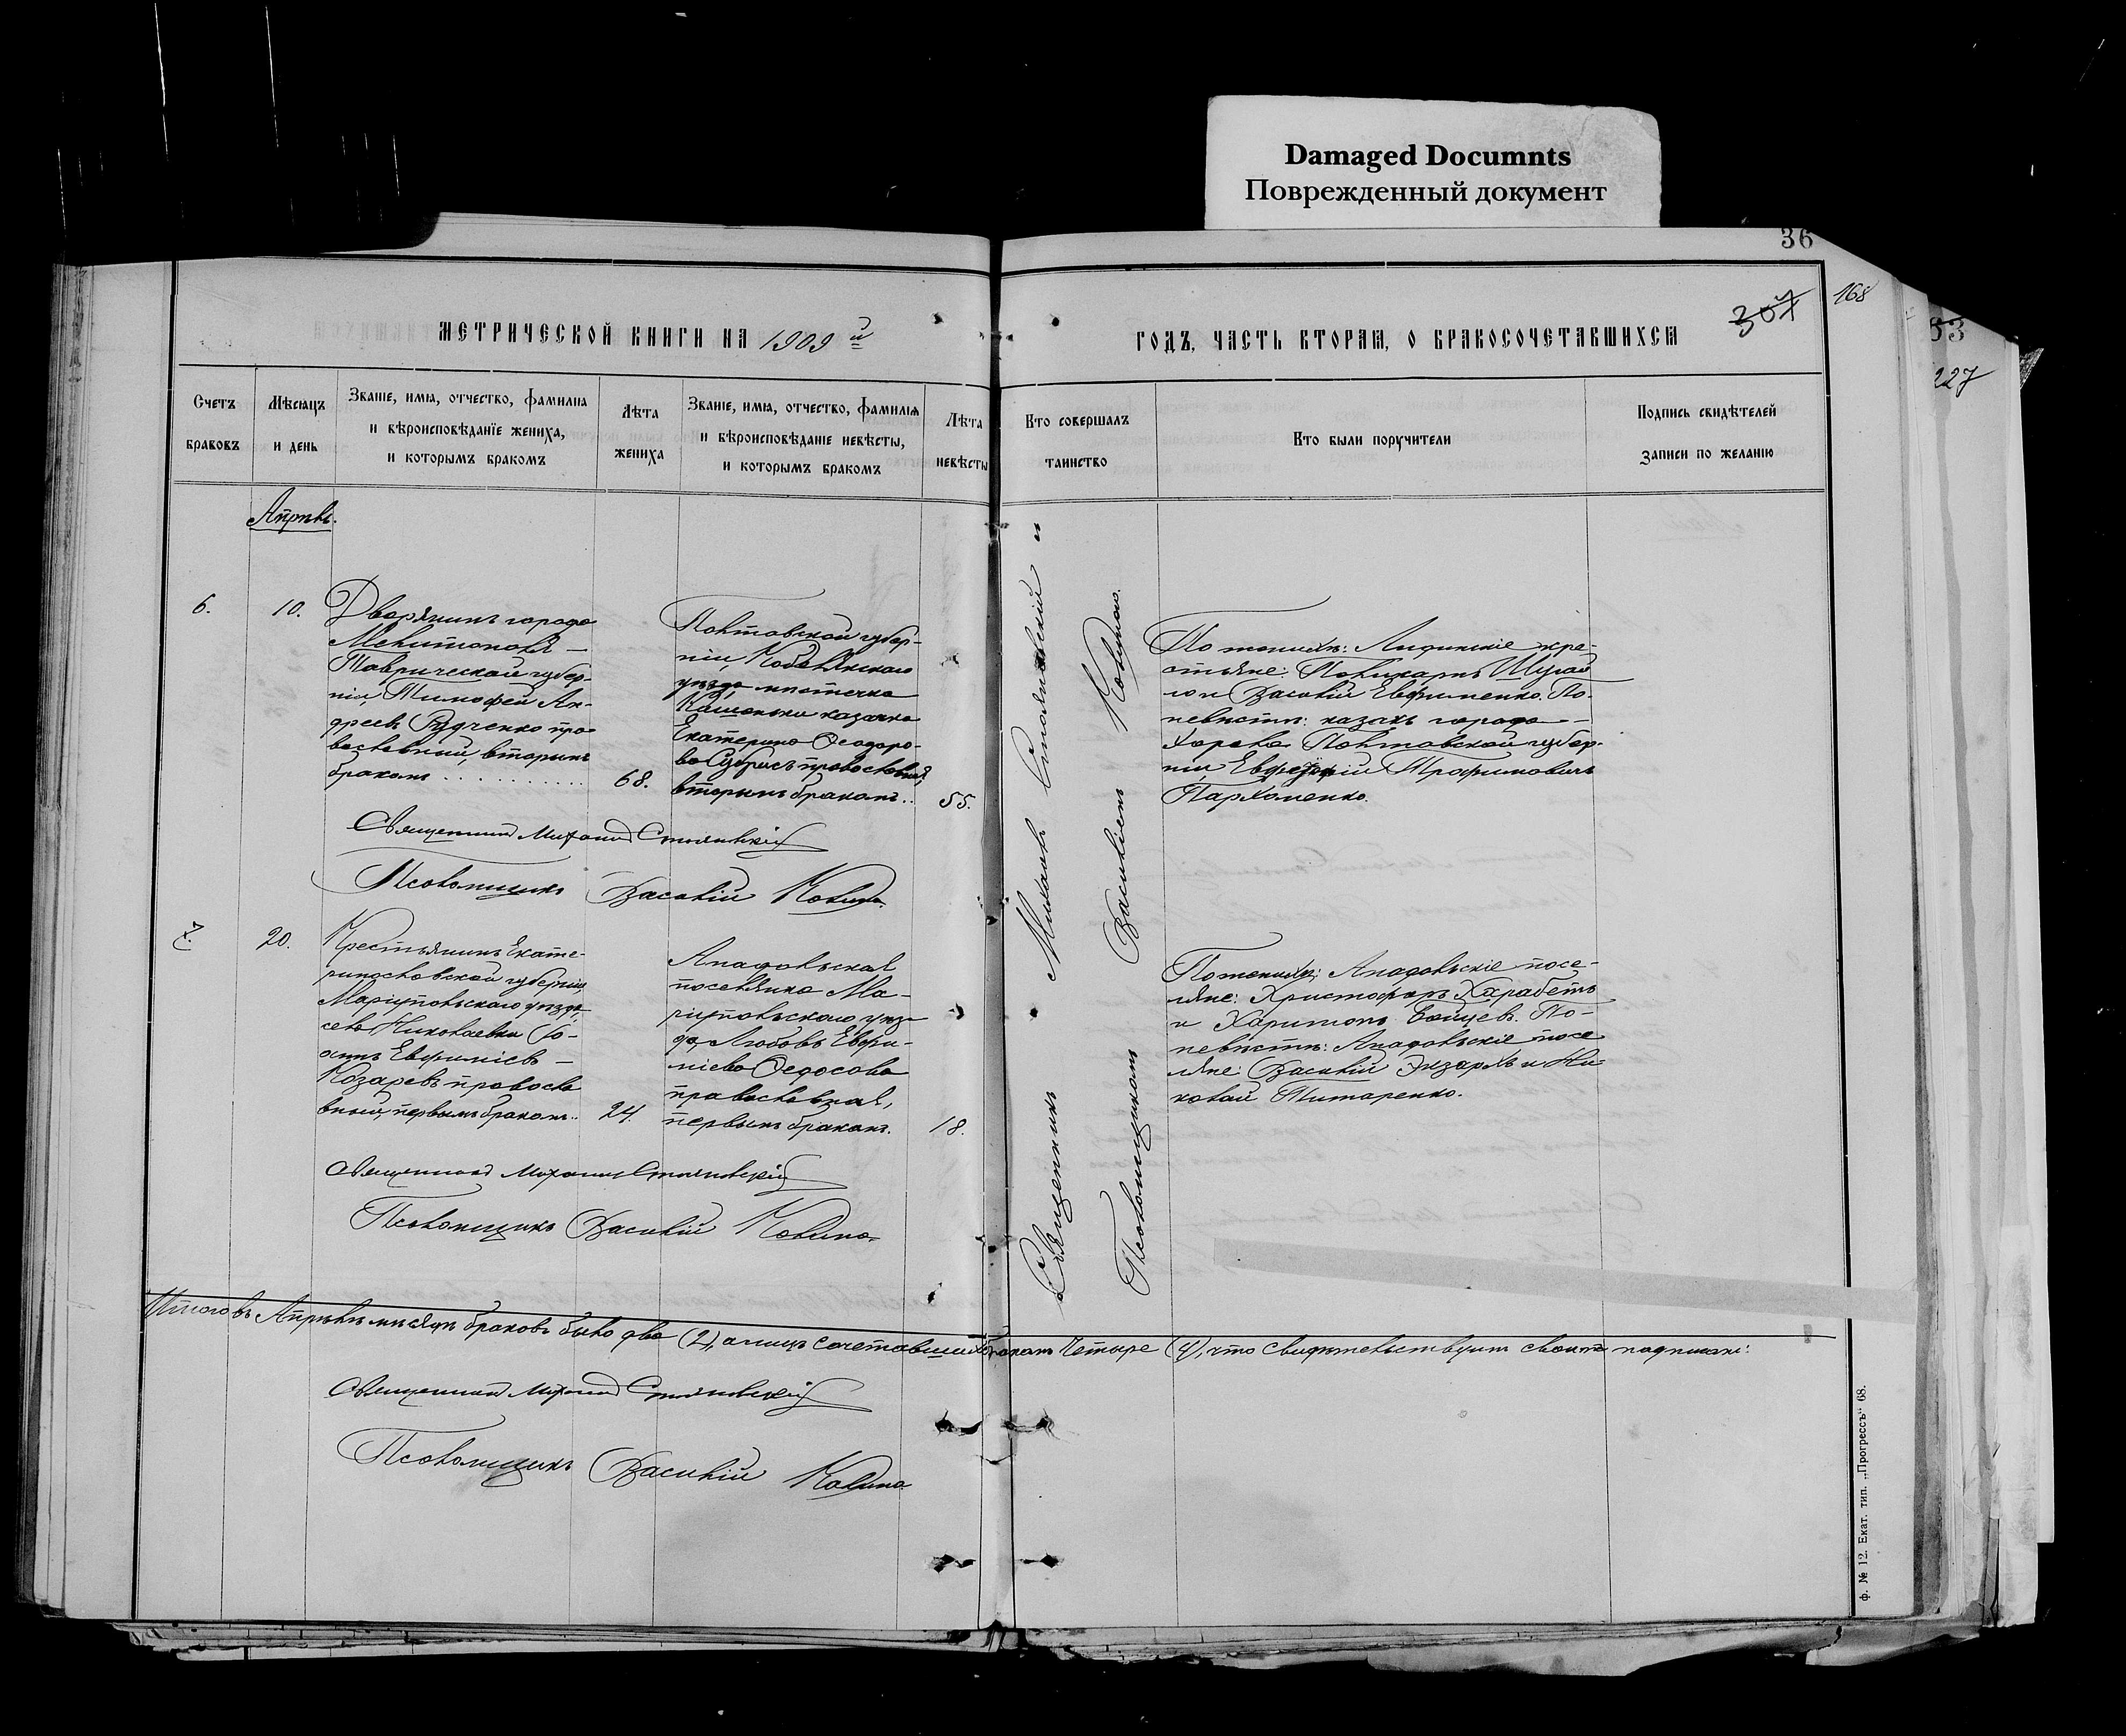 Damaged Documnts
Поврежденный документ
36
168
307
53
227
МЕТРИЧЕСКОЙ КНИГИ НА 1909 й
ГОДЪ, ЧАСТЬ ВТОРАЯ, О БРАКОСОЧЕТАВШИХСЯ
Счетъ
браковъ
Мѣсяцъ
и день
Званіе, имя, отчество, фамилія
и вѣроисповѣданіе жениха,
и которымъ бракомъ
Лѣта
жениха
Званіе, имя, отчество, фамилія
и вѣроисповѣданіе невѣсты,
и которымъ бракомъ
Лѣта
невѣсты
Кто совершалъ
таинство
Кто были поручители
Подпись свидѣтелей
записи по желанію
Апрѣль.
6.
10.
Дворянинъ города
Мелитополя
Таврической губер-
ніи, Тимофей Ан-
дреевъ Рудченко пра
вославный, вторымъ
бракомъ . . . . . . . . . .
68.
Полтавской губер-
ніи, Кобелякскаго
уѣзда мѣстечка
казачка
Екатерина Ѳеодоро-
ва православная,
вторымъ бракомъ..
55.
Священникъ Михаилъ Стояновскій и
Псаломщикомъ Василіемъ
По женихѣ: кре-
стьяне: Поликарпъ
и Василій Евфименко. По
невѣстѣ: казакъ города
Хорола Полтавской губер-
ніи Трофимовичъ
Пархоменко.
Священникъ Михаилъ Стояновскій
Псаломщикъ Василій
7.
20.
Крестьянинъ Екате-
ринославской губерніи,
Маріупольскаго уѣзда,
села Николаевки
Евфиміевъ
Козаревъ правосла
вный, первымъ бракомъ..
24.
Анадольская
поселянка Ма-
ріупольскаго уѣз-
да, Любовь Евфи-
міева Ѳедосова
православная,
первымъ бракомъ.
18.
По женихѣ: Анадольскіе посе-
ляне: Христофоръ Харабетъ
и Харитонъ По-
невѣстѣ: Анадольскіе посе
ляне: Василій Экзархъ и Ни-
колай Титаренко.
Священникъ Михаилъ Стояновскій
Псаломщикъ Василій
Итого въ Апрѣлѣ мѣсяцѣ браковъ было два (2), а лицъ сочетавшихся бракомъ четыре (4), что свидѣтельствуемъ своими подписями:
Священникъ Михаилъ Стояновскій
Псаломщикъ Василій
ф. № 12. Екат. тип. „Прогрессъ“ 68.